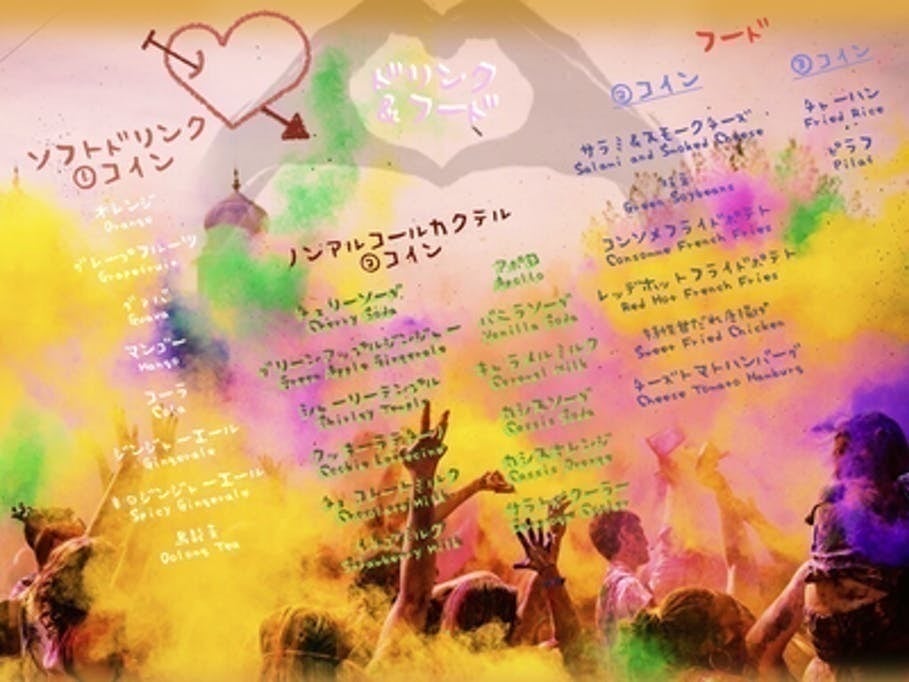 ドリンク
&フード
ソフトドリンク
①コイン
オレンジ
Orange
グレープフルーツ
Grapefruit
グァバ
Guava
マンゴー
Mango
コーラ
Cola
ジンジャーエール
Gingerale
辛口ジンジャーエール
Spicy Gingerale
烏龍茶
Oolong Tea
ノンアルコールカクテル
②コイン
チェリーソーダ
Cherry Soda
グリーンアップルジンジャー
Green Apple Gingerale
シャーリーテンプル
Shirley Temple
チョコレートミルク
Chocolate Milk
Strawberry Milk
アポロ
Apollo
バニラソーダ
Vanilla Soda
キャラメルミルク
Caramel Milk
カシスソーダ
Cassis Soda
カシスオレンジ
Cassis Orange
サラトガクーラー
フード
②コイン
サラミ&スモークチーズ
Salami and Smoked Cheese
枝豆
Green Soybeans
コンソメフライドポテト
Consome French Fries
レッドホットフライドポテト
Red Hot French Fries
特性甘だれ唐揚げ
Sweet Fried Chicken
チーズトマトハンバーグ
Cheese Tomato Hamburg
③コイン
チャーハン
Fried Rice
ピラフ
Pilaf